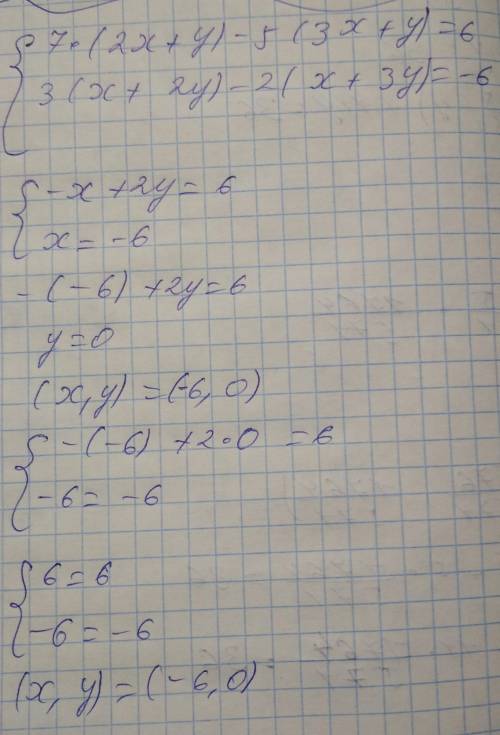 7·(2x+y)-5(3x+y)=6
3(x+2y)-2(x+3y)=-6
-x+2y=6
x=-6
-(-6)+2y=6
y=0
(x,y)=(-6,0)
-(-6)+2·0=6
-6=-6
6=6
-6=-6
(x,y)=(-6,0)